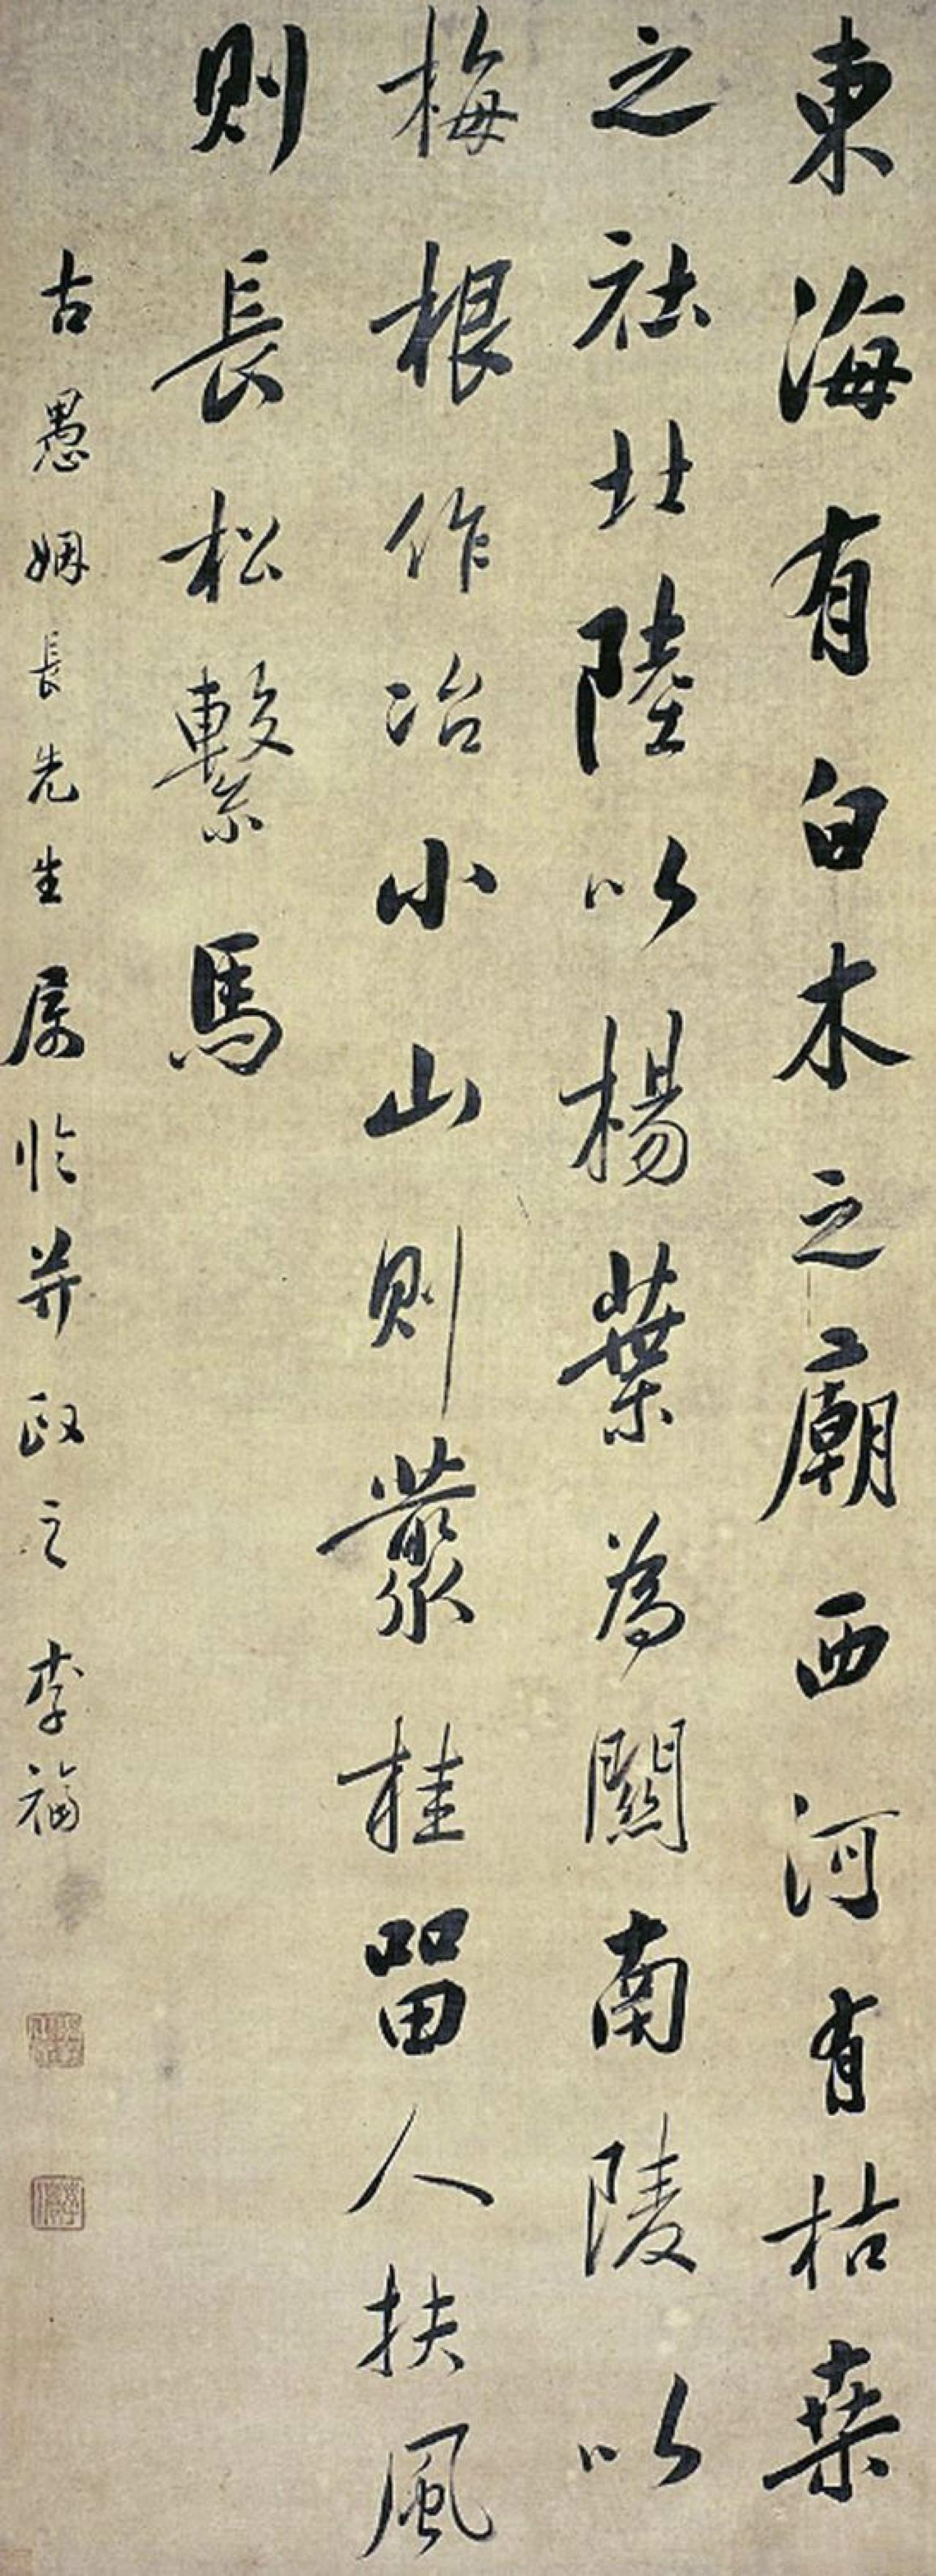 東海有白木之廟西河有枯桒
之社北陸以楊葉為關南陵以
梅根作冶小山則叢桂留人扶風
則長松繫馬
古愚姻長先生属临并政之 李福